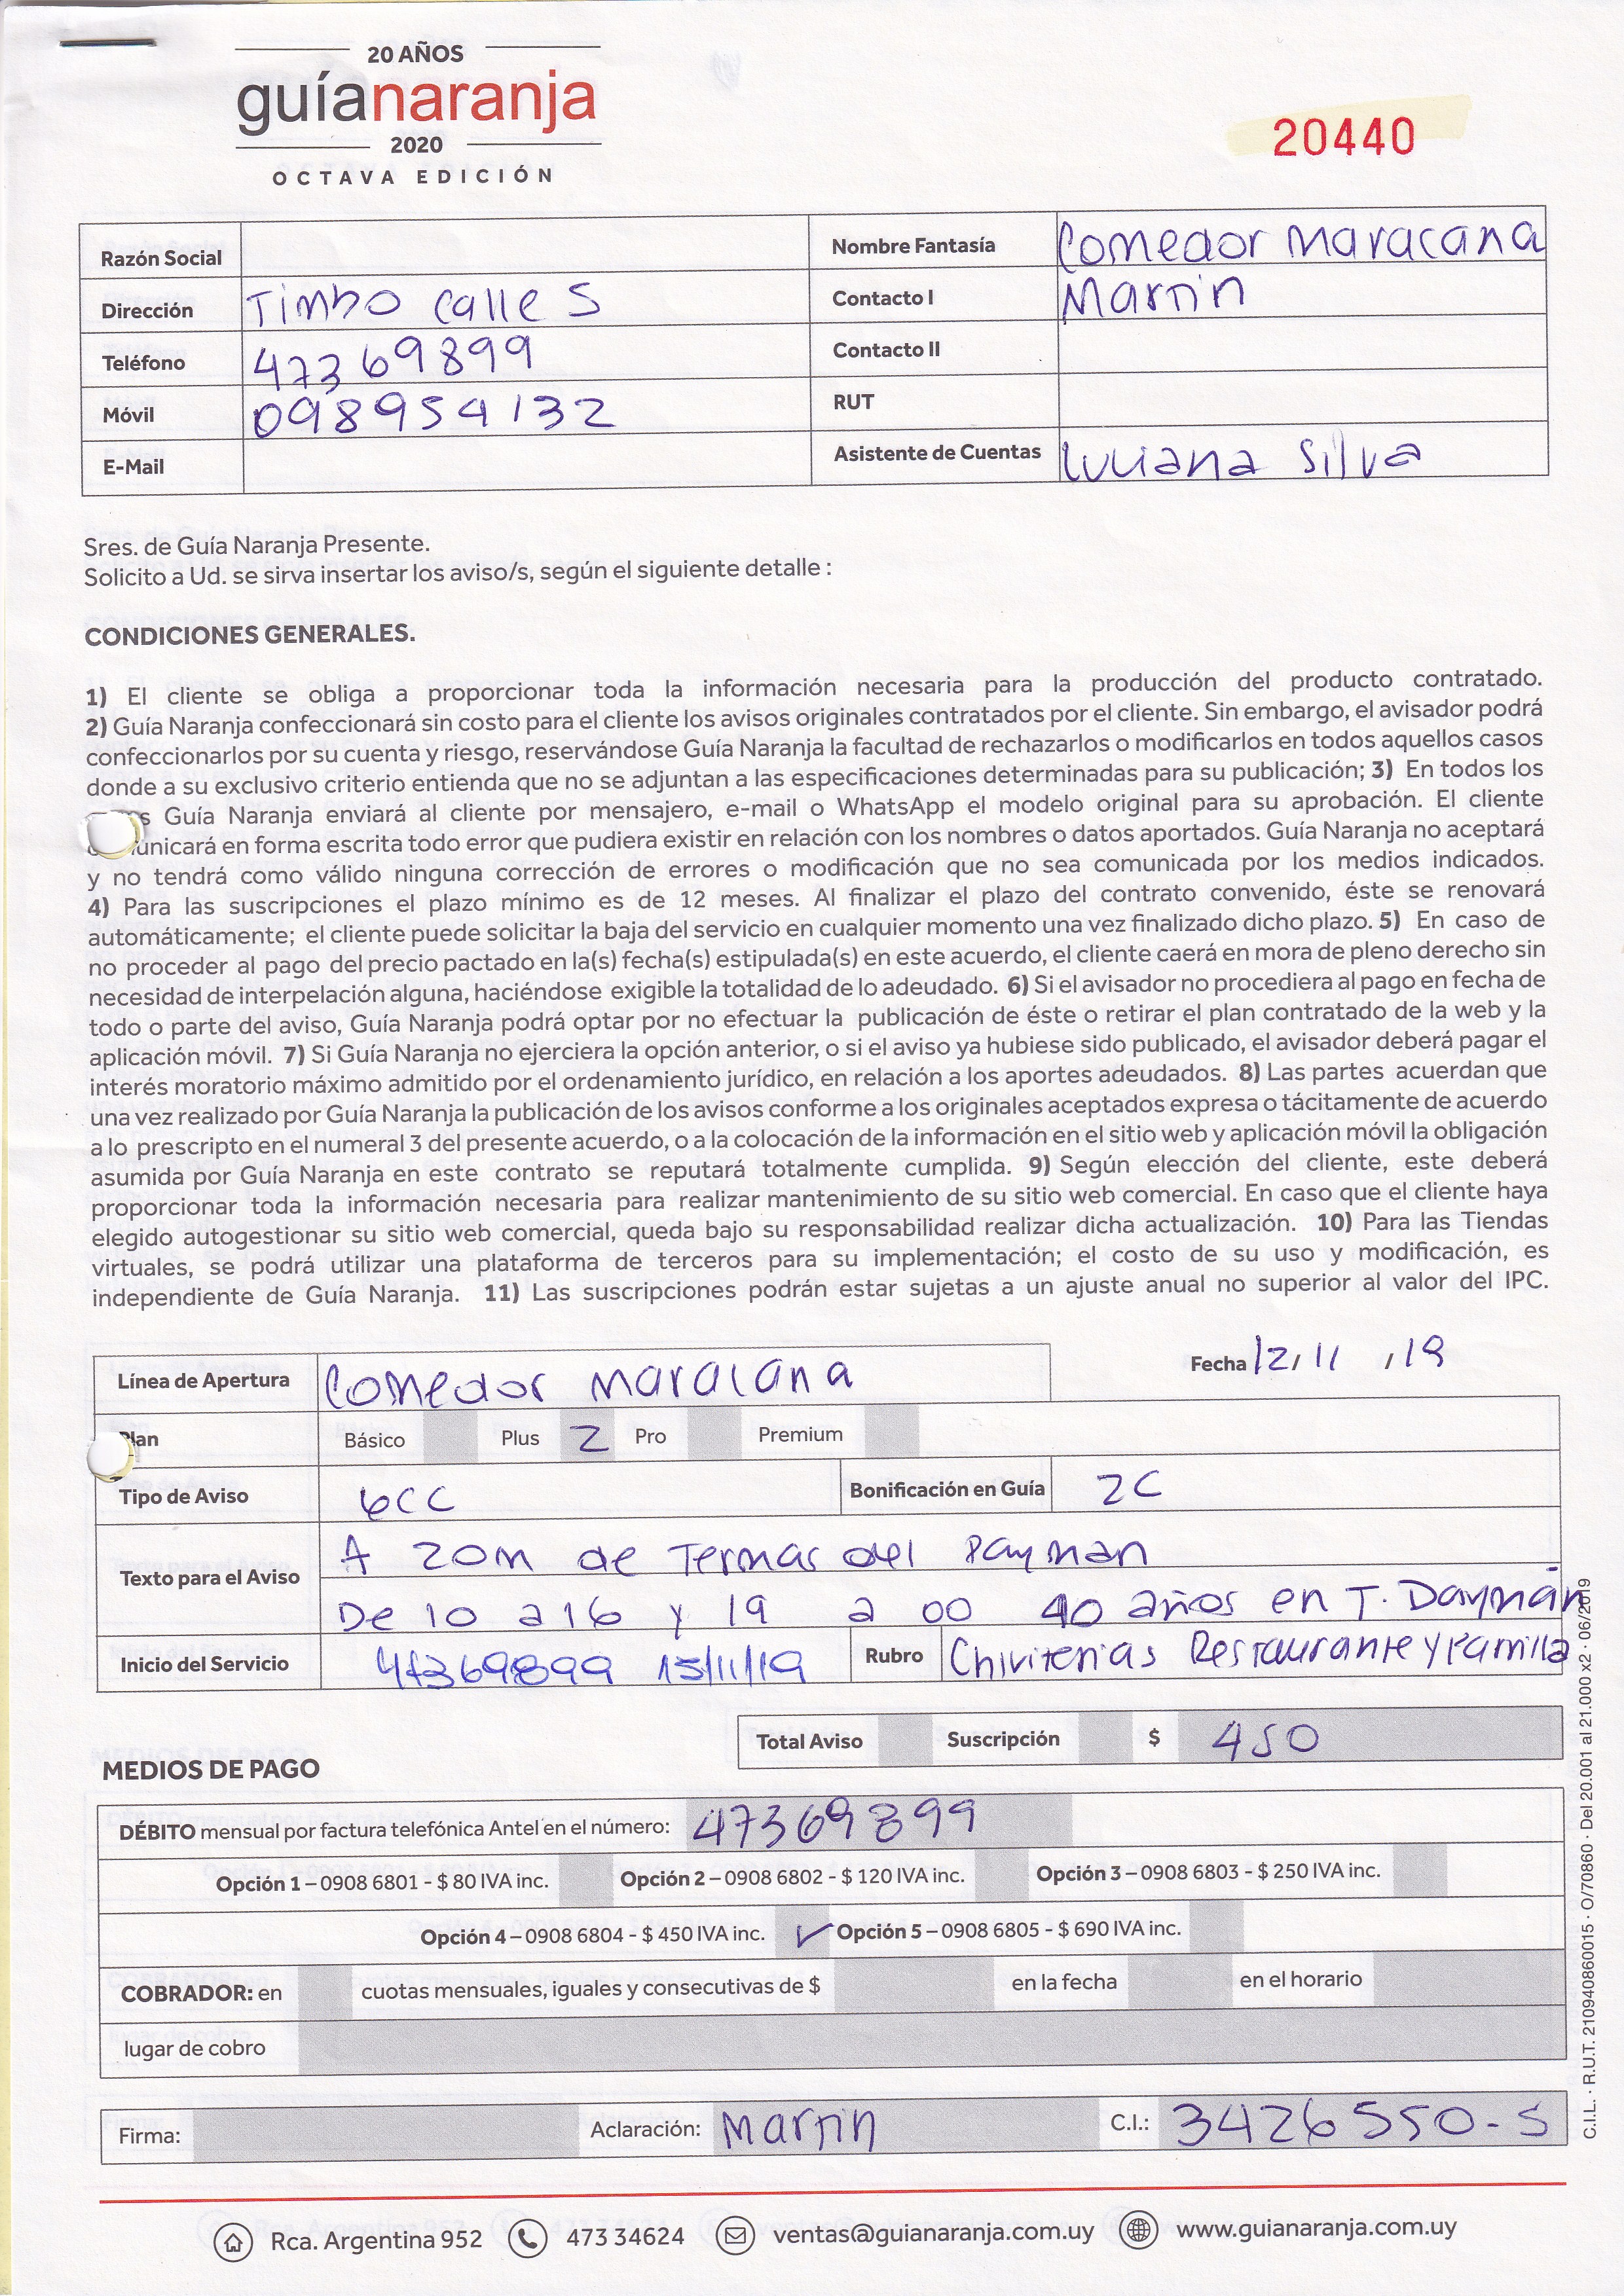 20 AÑOS
guíanaranja
2020
OCTAVA EDICIÓN
20440
Razón Social
Nombre Fantasía Comedor Maracana
Dirección Timbo calle S
Contacto I Martin
Teléfono 47369899
Contacto II
Móvil 098954132
RUT
E-Mail
Asistente de Cuentas Luciana Silva
Sres. de Guía Naranja Presente.
Solicito a Ud. se sirva insertar los aviso/s, según el siguiente detalle :
CONDICIONES GENERALES.
1) El cliente se obliga a proporcionar toda la información necesaria para la producción del producto contratado.
2) Guía Naranja confeccionará sin costo para el cliente los avisos originales contratados por el cliente. Sin embargo, el avisador podrá
confeccionarlos por su cuenta y riesgo, reservándose Guía Naranja la facultad de rechazarlos o modificarlos en todos aquellos casos
donde a su exclusivo criterio entienda que no se adjuntan a las especificaciones determinadas para su publicación; 3) En todos los
Guía Naranja enviará al cliente por mensajero, e-mail o WhatsApp el modelo original para su aprobación. El cliente
unicará en forma escrita todo error que pudiera existir en relación con los nombres o datos aportados. Guía Naranja no aceptará
y no tendrá como válido ninguna corrección de errores o modificación que no sea comunicada por los medios indicados.
4) Para las suscripciones el plazo mínimo es de 12 meses. Al finalizar el plazo del contrato convenido, éste se renovará
automáticamente; el cliente puede solicitar la baja del servicio en cualquier momento una vez finalizado dicho plazo. 5) En caso de
no proceder al pago del precio pactado en la(s) fecha(s) estipulada(s) en este acuerdo, el cliente caerá en mora de pleno derecho sin
necesidad de interpelación alguna, haciéndose exigible la totalidad de lo adeudado. 6) Si el avisador no procediera al pago en fecha de
todo o parte del aviso, Guía Naranja podrá optar por no efectuar la publicación de éste o retirar el plan contratado de la web y la
aplicación móvil. 7) Si Guía Naranja no ejerciera la opción anterior, o si el aviso ya hubiese sido publicado, el avisador deberá pagar el
interés moratorio máximo admitido por el ordenamiento jurídico, en relación a los aportes adeudados. 8) Las partes acuerdan que
una vez realizado por Guía Naranja la publicación de los avisos conforme a los originales aceptados expresa o tácitamente de acuerdo
a lo prescripto en el numeral 3 del presente acuerdo, o a la colocación de la información en el sitio web y aplicación móvil la obligación
asumida por Guía Naranja en este contrato se reputará totalmente cumplida. 9) Según elección del cliente, este deberá
proporcionar toda la información necesaria para realizar mantenimiento de su sitio web comercial. En caso que el cliente haya
elegido autogestionar su sitio web comercial, queda bajo su responsabilidad realizar dicha actualización. 10) Para las Tiendas
virtuales, se podrá utilizar una plataforma de terceros para su implementación; el costo de su uso y modificación, es
independiente de Guía Naranja. 11) Las suscripciones podrán estar sujetas a un ajuste anual no superior al valor del IPC.
Línea de Apertura Comedor maracana
Fecha 12/11/19
Plan Básico Plus 2 Pro Premium
Tipo de Aviso 6CC Bonificación en Guía 2C
Texto para el Aviso
A 20m de Termas del Dayman
De 10 a 16 y 19 a 00 40 años en T. Daymán
Inicio del Servicio 47369899 15/11/19 Rubro Chiviterias Restaurante y Parrilla
Total Aviso Suscripción $ 450
MEDIOS DE PAGO
DÉBITO mensual por factura telefónica Antel en el número: 47369899
Opción 1 – 0908 6801 - $ 80 IVA inc. Opción 2 – 0908 6802 - $ 120 IVA inc. Opción 3 – 0908 6803 - $ 250 IVA inc.
Opción 4 – 0908 6804 - $ 450 IVA inc. ✓ Opción 5 – 0908 6805 - $ 690 IVA inc.
COBRADOR: en cuotas mensuales, iguales y consecutivas de $ en la fecha en el horario
lugar de cobro
Firma: Aclaración: Martin C.I.: 3426550-5
Rca. Argentina 952 473 34624 ventas@guianaranja.com.uy www.guianaranja.com.uy
C.I.L. · R.U.T. 210940860015 · O/70860 · Del 20.001 al 21.000 x2 · 06/2019